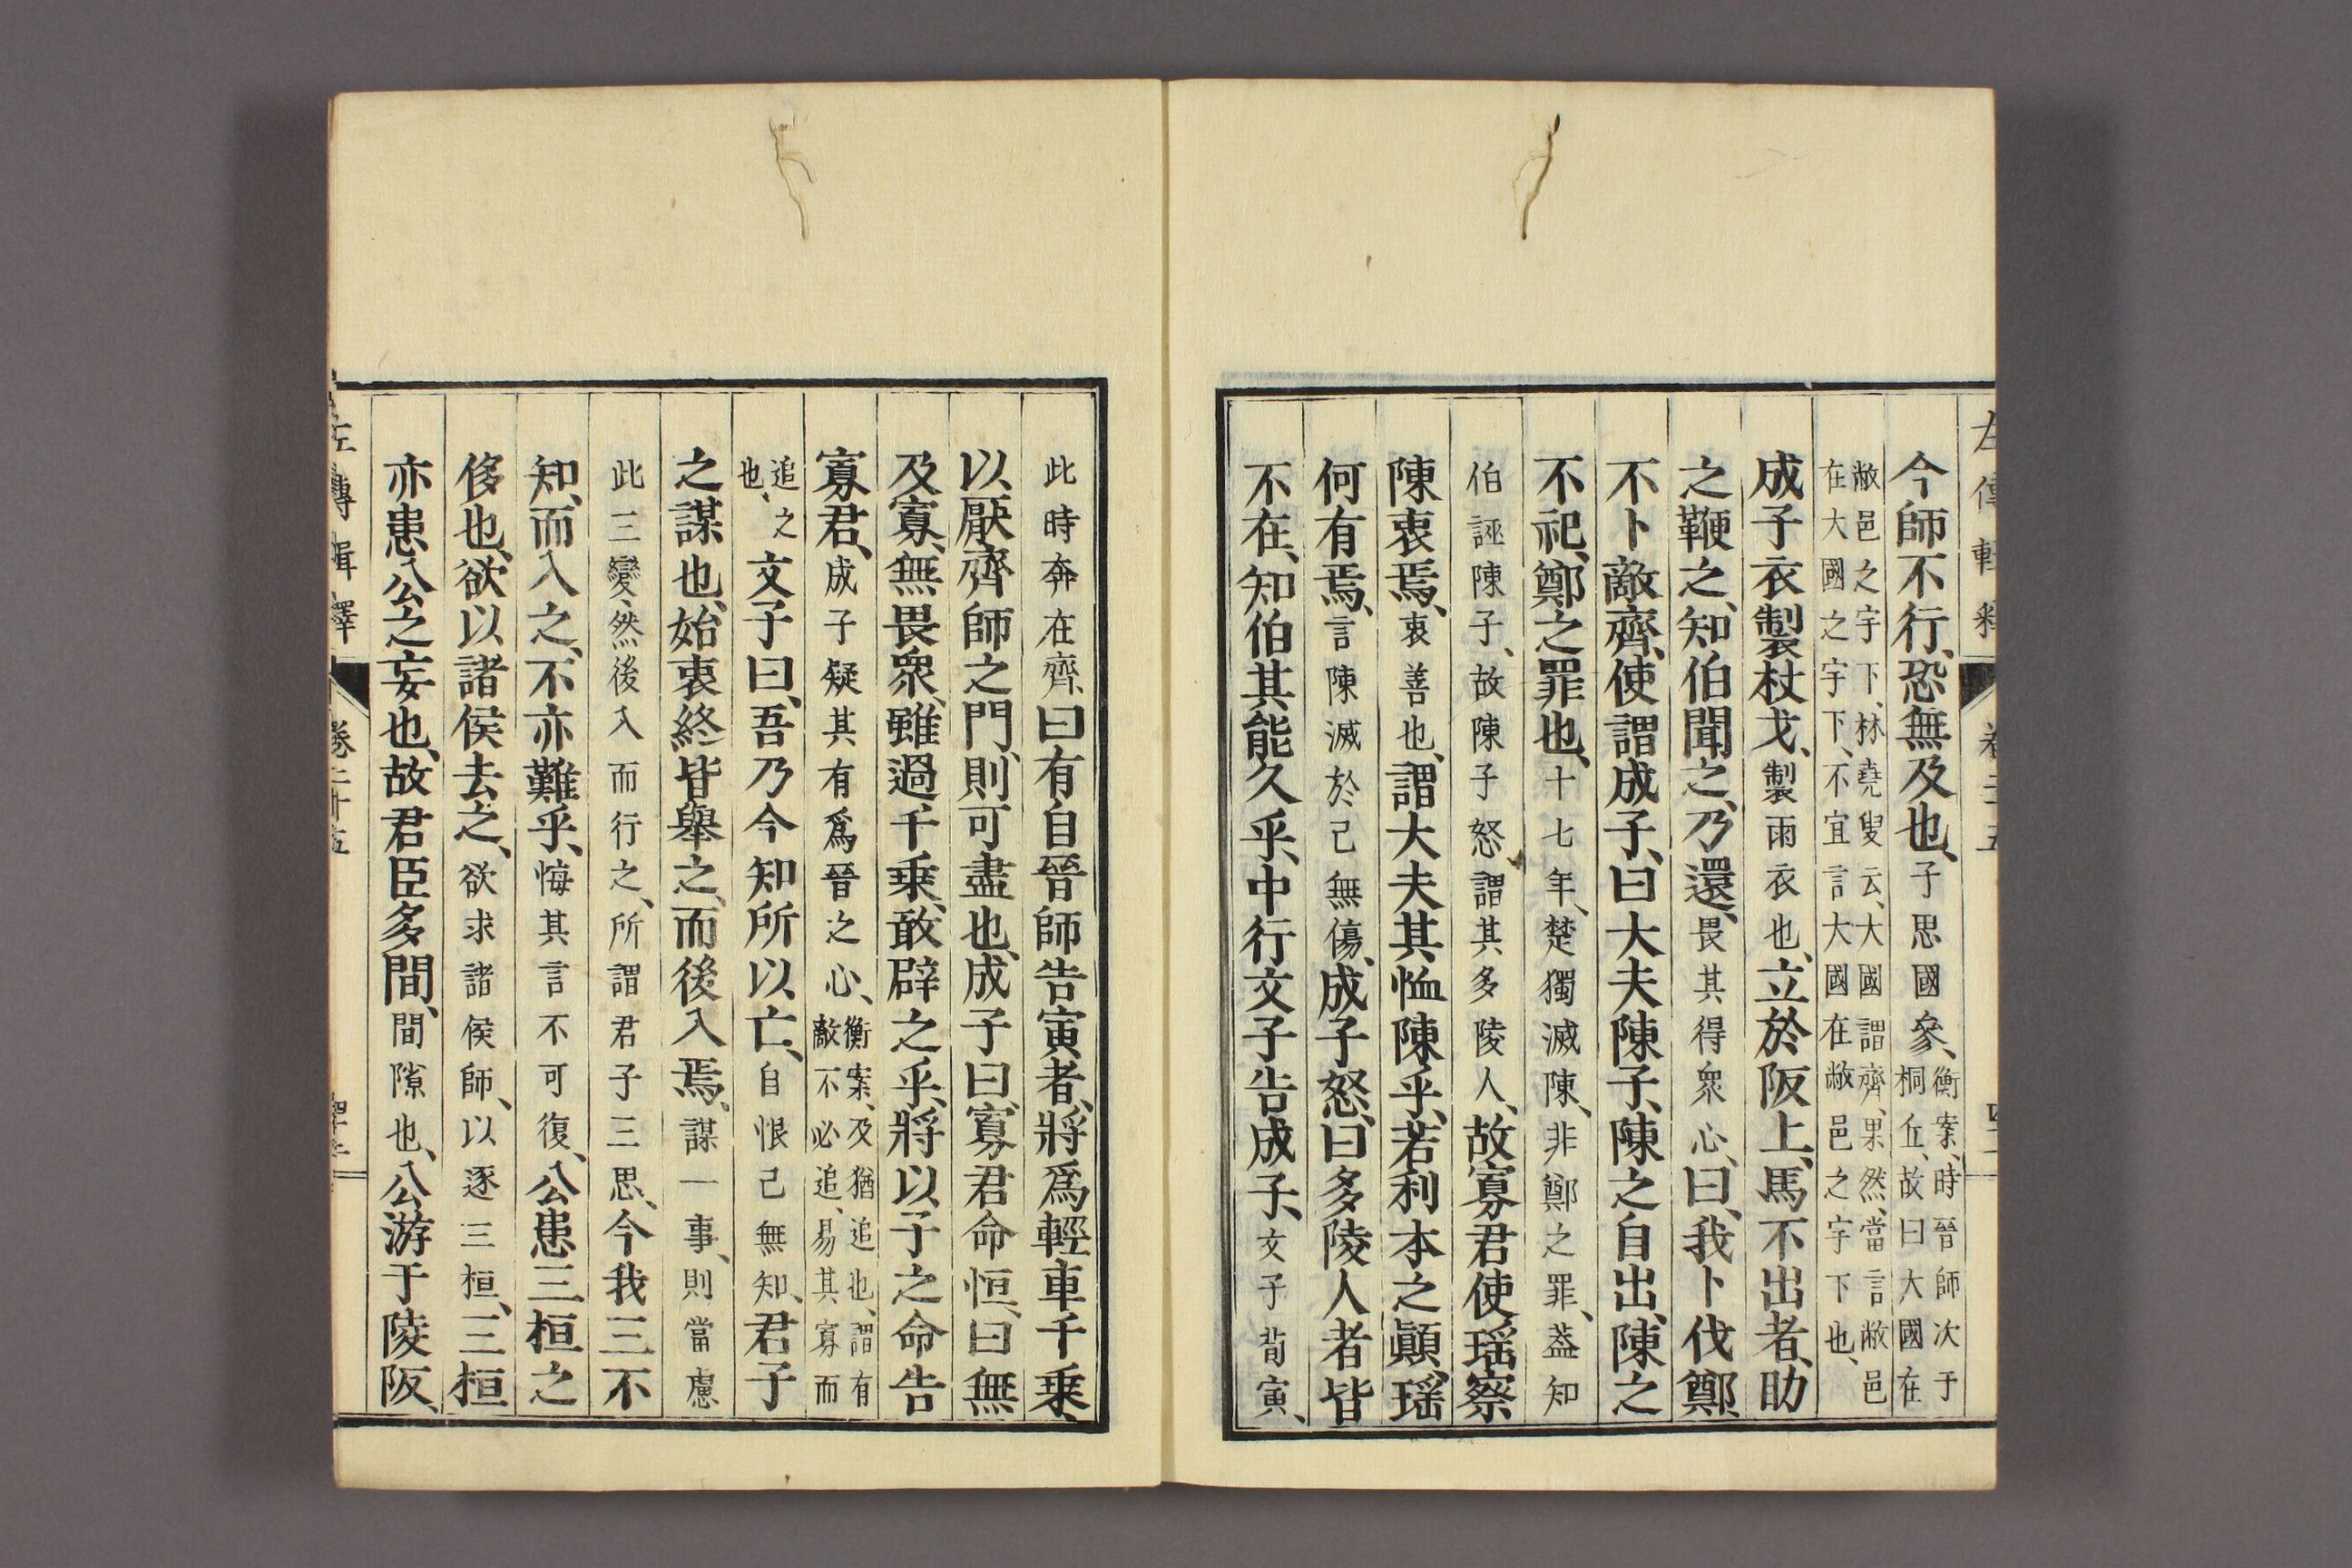 今師不行、恐無及也、子思國參、衡案、時晉師次于桐丘、故曰大國在
敝邑之宇下、林堯叟云、大國謂齊、果然、當言敝邑在大國之宇下、不宜言大國在敝邑之宇下也、
成子衣製杖戈、製雨衣也、立於阪上、馬不出者、助
之鞭之、知伯聞之、乃還、畏其得衆心、曰、我卜伐鄭、
不卜敵齊、使謂成子、曰大夫陳子、陳之自出、陳之
不祀、鄭之罪也、十七年、楚獨滅陳、非鄭之罪、蓋知
伯誣陳子、故陳子怒、謂其多陵人、故寡君使瑶察
陳衷焉、衷善也、謂大夫其恤陳乎、若利本之顚、瑶
何有焉、言陳滅於己無傷、成子怒、曰多陵人者皆
不在、知伯其能久乎、中行文子告成子、文子荀寅、
此時奔在齊、曰有自晉師告寅者、將爲輕車千乘、
以厭齊師之門、則可盡也、成子曰、寡君命恒、曰無
及寡、無畏衆、雖過千乘、敢辟之乎、將以子之命告
寡君、成子疑其有爲晉之心、衡案、及猶追也、謂有敵不必追、易其寡而
追之也、文子曰、吾乃今知所以亡、自恨己無知、君子
之謀也、始衷終皆舉之、而後入焉、謀一事、則當慮
此三變、然後入而行之、所謂君子三思、今我三不
知、而入之、不亦難乎、悔其言不可復、公患三桓之
侈也、欲以諸侯去之、欲求諸侯師、以逐三桓、三桓
亦患公之妄也、故君臣多間、間隙也、公游于陵阪、
左傳輯釋
卷二十五